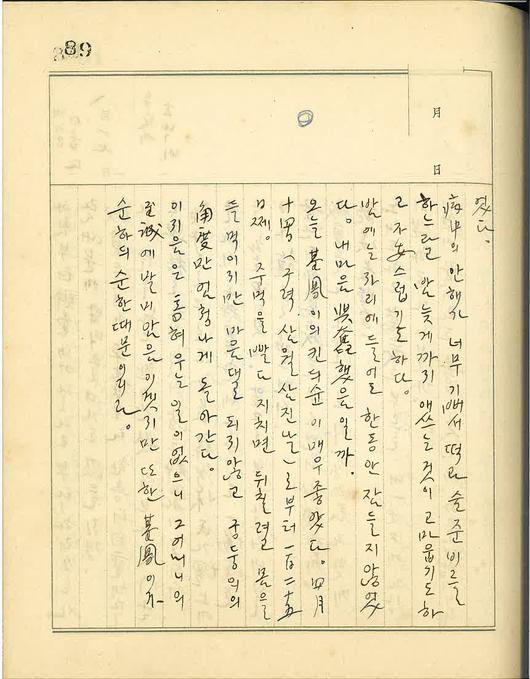 89
月
日
었다.
病中의 안해가 너무 기뻐서 떡과 술 준비를
하느라고 밤 늦게까지 애쓰는 것이 고마웁기도 하
고 자스럽기도 하다.
밤에는 자리에 들어도 한동안 잠들지 않었
다. 내 마음 興奮했음일까.
오늘 鳳이의 컨듸순이 매우 좋았다. 四月
十四日(구력, 삼월 삼진날)로부터 一百二十
日째. 주먹을 빨다 지치면 뒤칠려 몸을
들먹이지만 마음대로 되지 않고 궁둥이의
角度만 엄청나게 돌아간다.
이지음은 통 우는 일이 없으니 그어머니의
至誠에 말미암음이겠지만 또한 鳳이가
순하듸 순한 때문이리라.